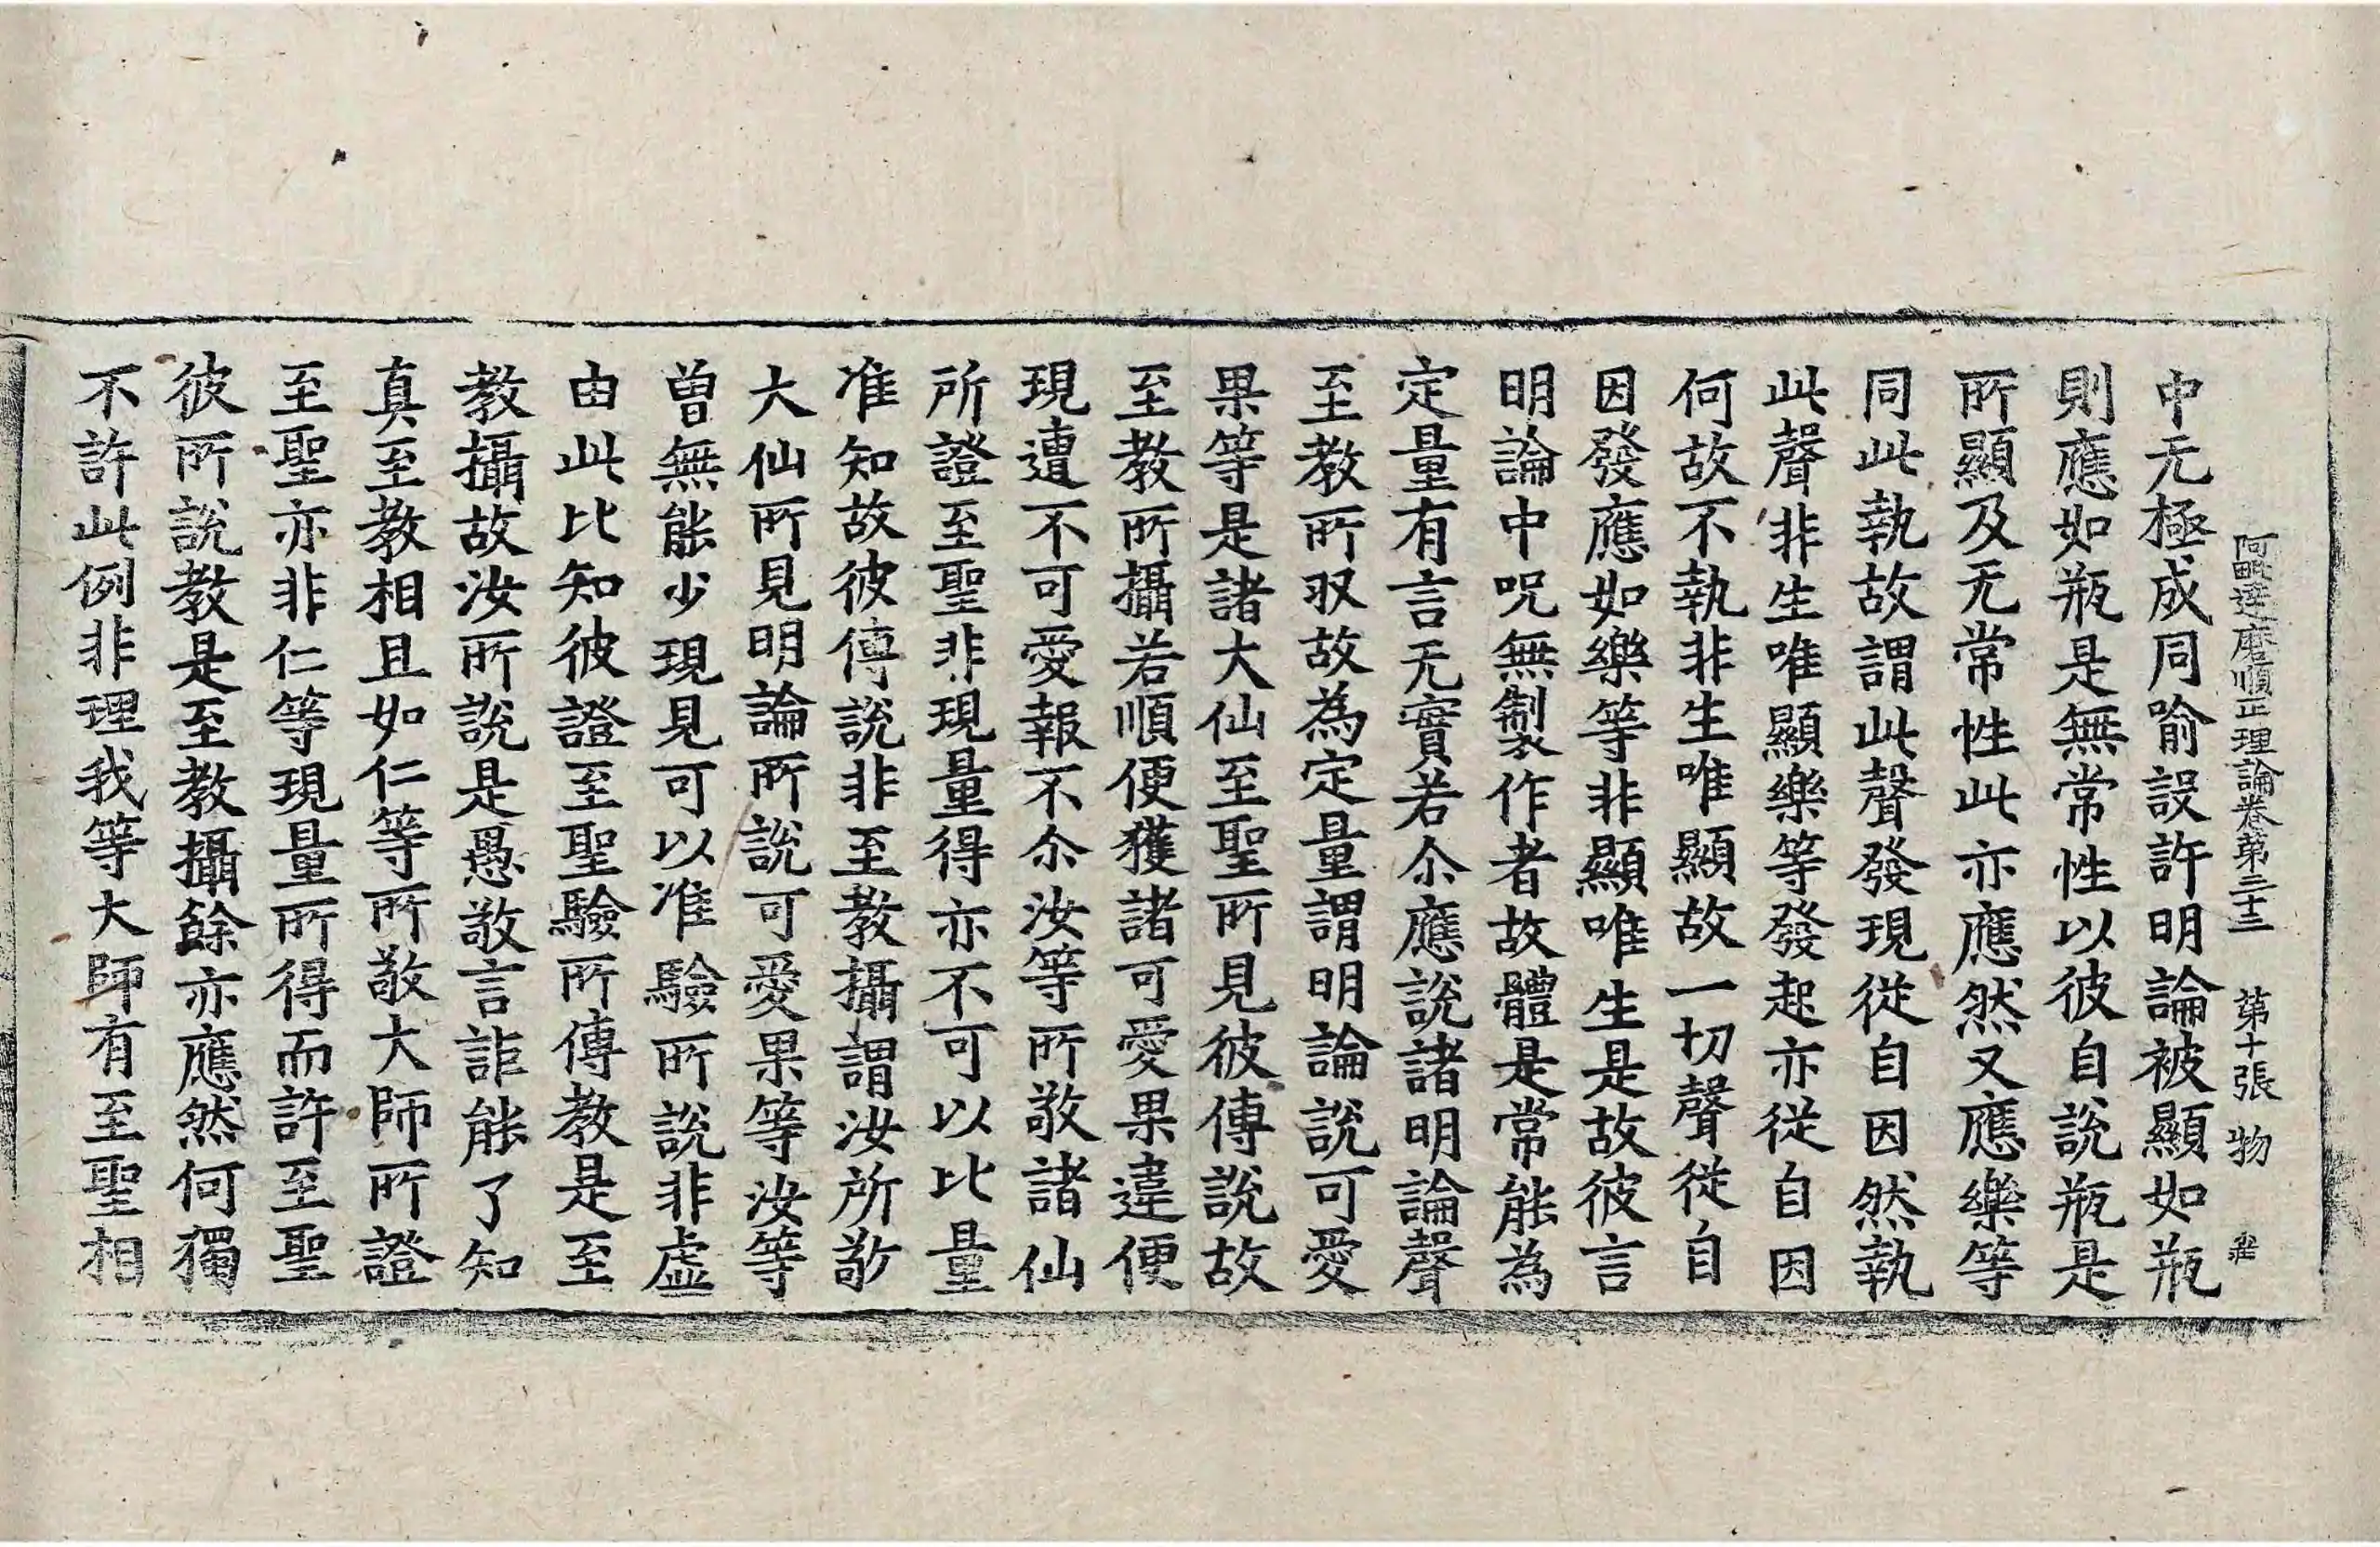 阿毗達磨順正理論卷第三十三 第十張 物
中无極成同喻設許明論被顯如瓶
則應如瓶是無常性以彼自說瓶是
所顯及无常性此亦應然又應樂等
同此執故謂此聲發現從自因然執
此聲非生唯顯樂等發起亦從自因
何故不執非生唯顯故一切聲從自
因發應如樂等非顯唯生是故彼言
明論中呪無製作者故體是常能為
定量有言无實若尒應說諸明論聲
至教所収故為定量謂明論說可愛
果等是諸大仙至聖所見彼傳說故
至教所攝若順便獲諸可愛果違便
現遭不可愛報不尒汝等所敬諸仙
所證至聖非現量得亦不可以比量
准知故彼傳說非至教攝謂汝所敬
大仙所見明論所說可愛果等汝等
曾無能少現見可以准驗所說非虛
由此比知彼證至聖驗所傳教是至
教攝故汝所說是愚敬言詎能了知
真至教相且如仁等所敬大師所證
至聖亦非仁等現量所得而許至聖
彼所說教是至教攝餘亦應然何獨
不許此例非理我等大師有至聖相